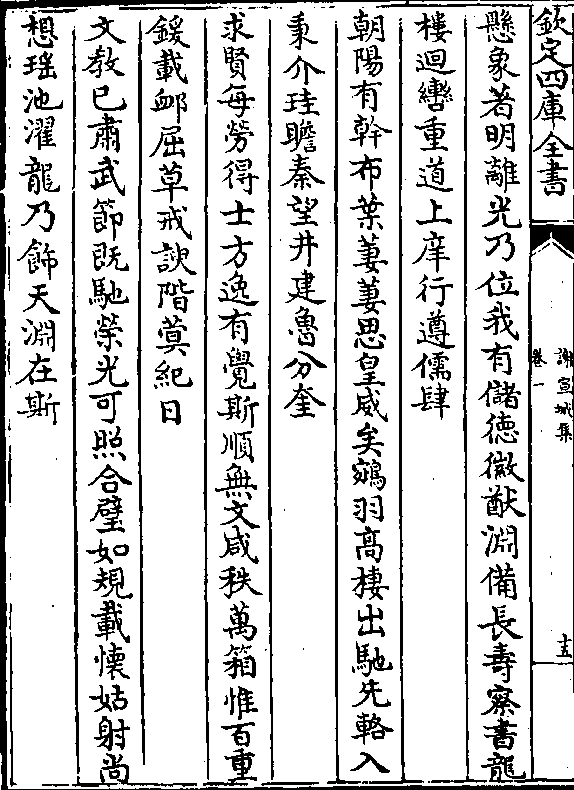 欽定四庫全書
謝宣城集
卷一
十五
懸象著明離光乃位我有儲徳徽猷淵備長壽察書龍
樓迴轡重道上庠行遵儒肆
朝陽有幹布葉萋萋思皇威矣鵷羽高棲出馳先輅入
秉介珪瞻秦望井建魯分奎
求賢每勞得士方逸有覺斯順無文咸秩萬箱惟百重
鍰載䘏屈草戒諛階蓂紀日
文教已肅武節既馳榮光可照合璧如規載懐姑射尚
想瑶池濯龍乃飾天淵在斯